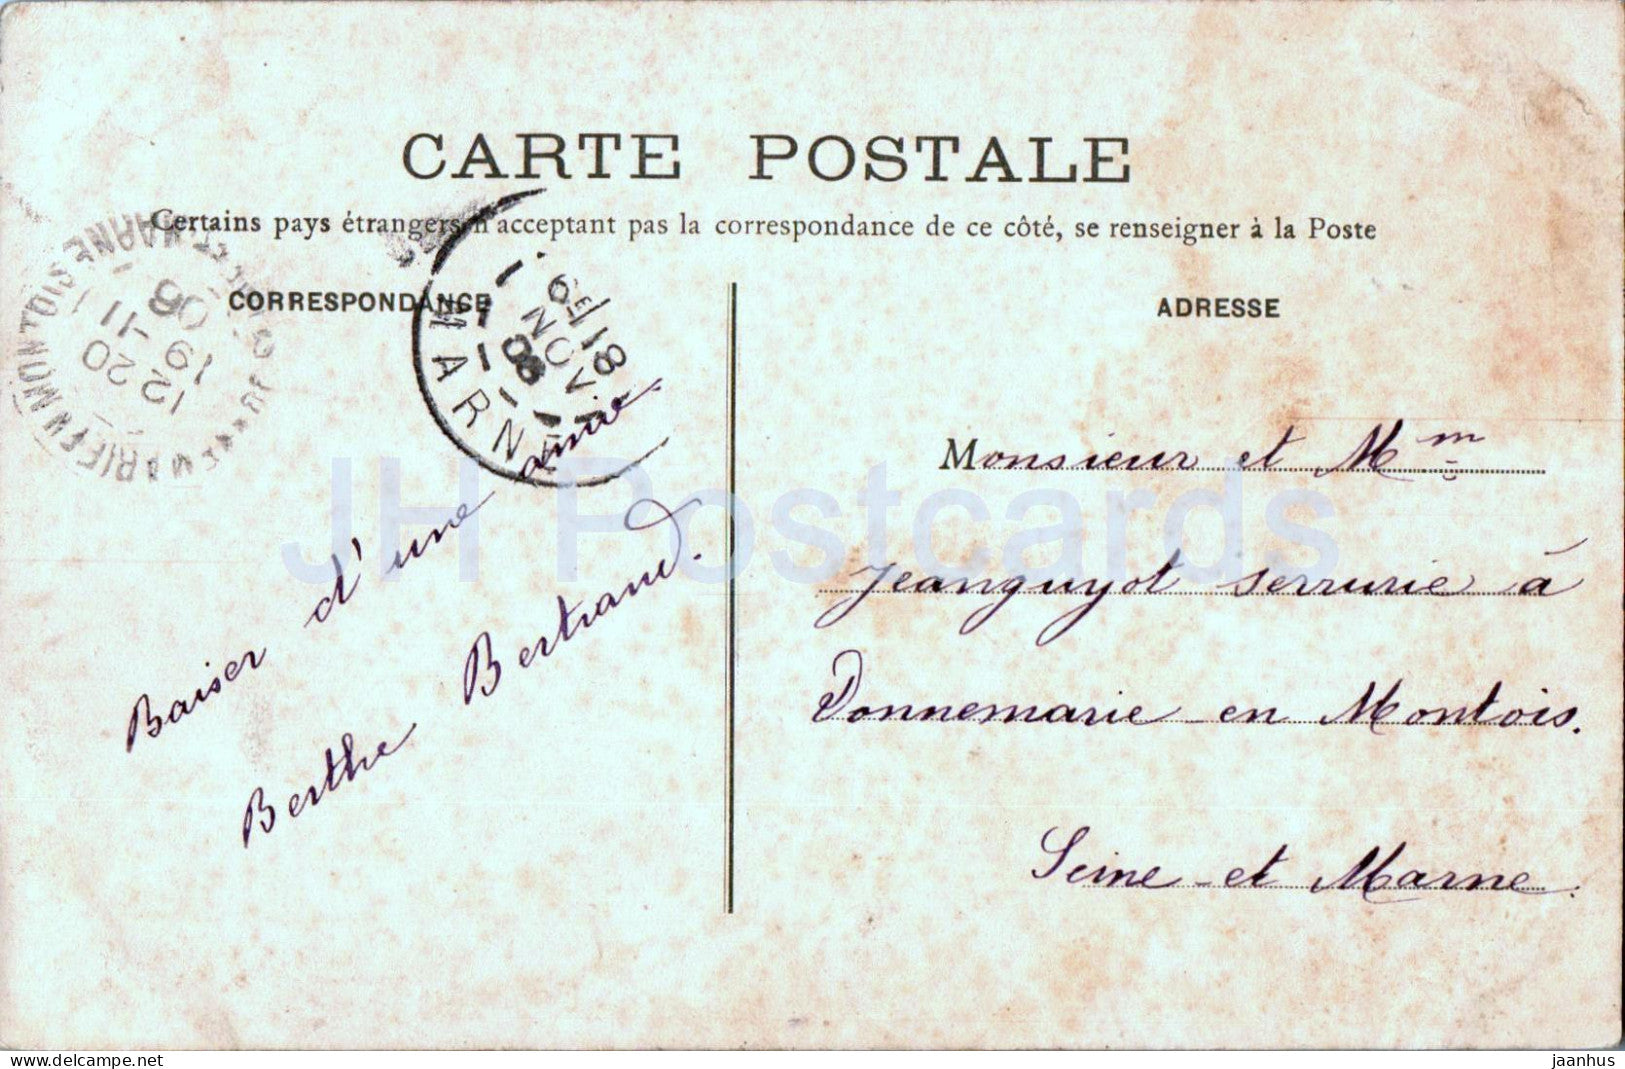 CARTE POSTALE
Certains pays étrangers n'acceptant pas la correspondance de ce côté, se renseigner à la Poste
CORRESPONDANCE
ADRESSE
MARNE
18
NOV
08
MARNE
12 20
19-11
08
Baiser d'une amie.
Berthe Bertrand.
Monsieur et Mm
Jeanguyot serrurie à
Donnemarie en Montois.
Seine et Marne.
JH Postcards
delcampe.net
jaanhus